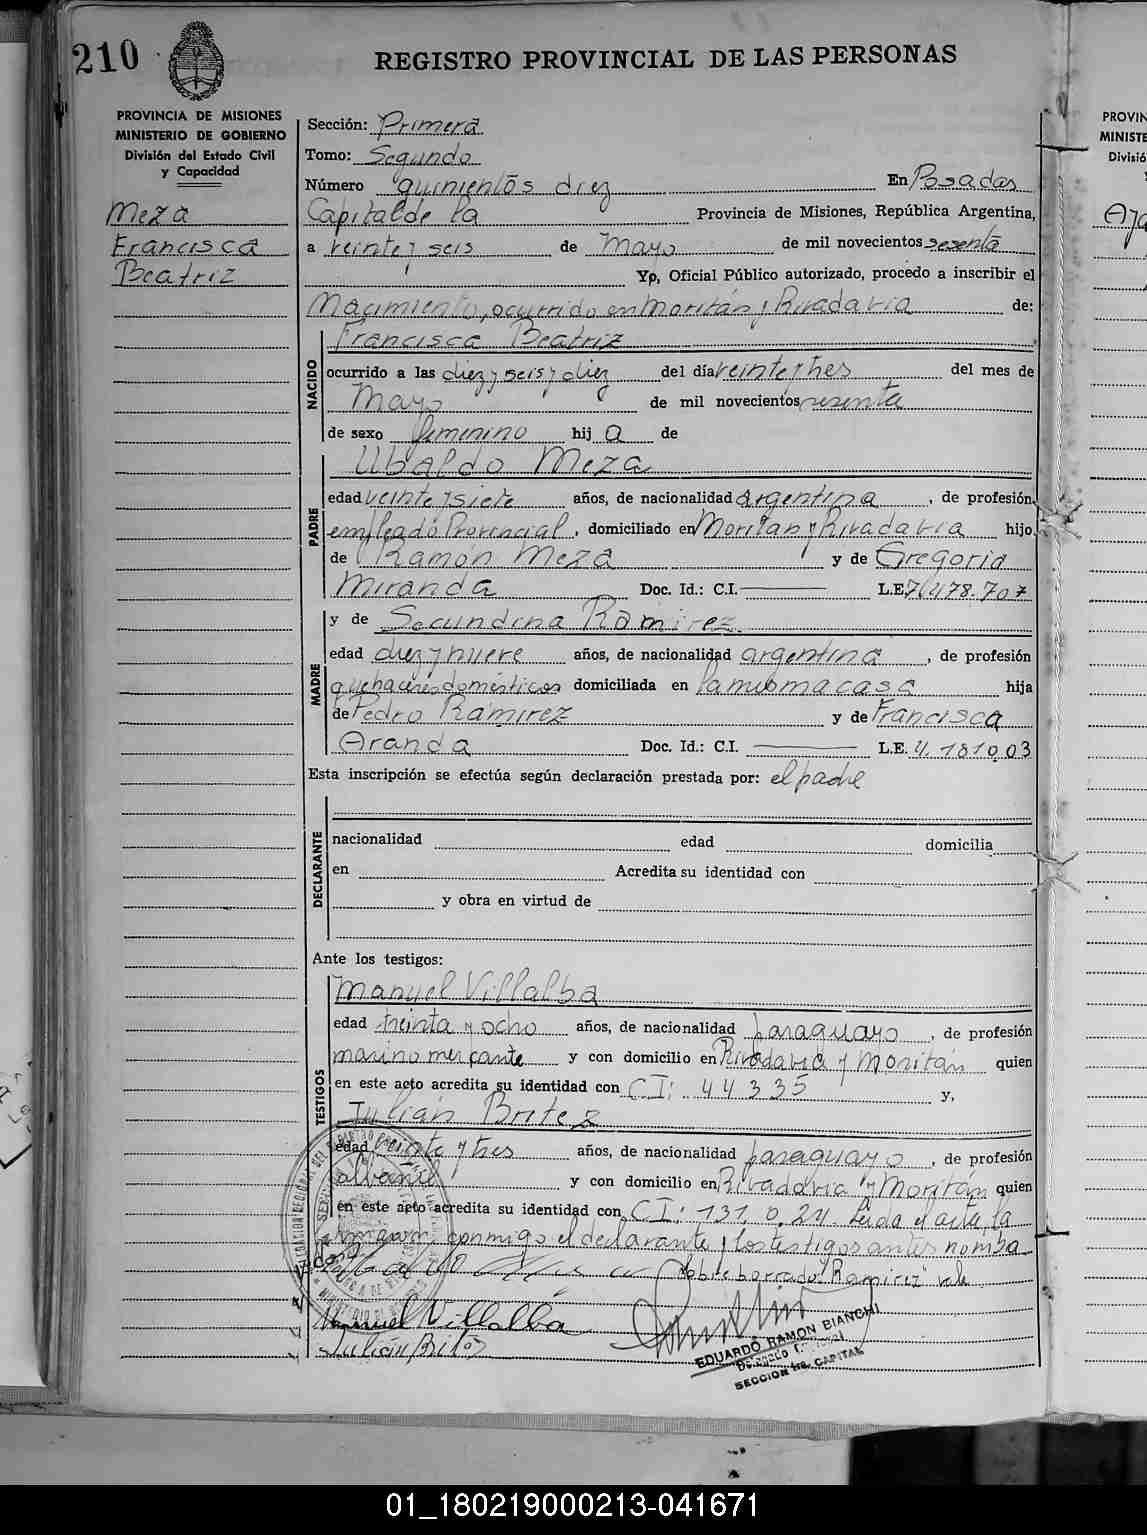 210
REGISTRO PROVINCIAL DE LAS PERSONAS
PROVINCIA DE MISIONES
MINISTERIO DE GOBIERNO
División del Estado Civil
y Capacidad
Meza
Francisca
Beatriz
Sección: Primera
Tomo: Segundo
Número quinientos diez En Posadas
Capital de la Provincia de Misiones, República Argentina,
a veinte y seis de Mayo de mil novecientos sesenta
Yo, Oficial Público autorizado, procedo a inscribir el
Nacimiento, ocurrido en Moritán y Rivadavia de:
NACIDO
Francisca Beatriz
ocurrido a las diez y seis y diez del día veinte y tres del mes de
Mayo de mil novecientos sesenta
de sexo femenino hij a de
PADRE
Ubaldo Meza
edad veinte y siete años, de nacionalidad argentina, de profesión
empleado Provincial, domiciliado en Moritan y Rivadavia hijo
de Ramón Meza y de Gregoria
Miranda Doc. Id.: C.I. L.E. 7.478.707
y de Secundina Ramirez
MADRE
edad diez y nueve años, de nacionalidad argentina, de profesión
quehaceres domésticos domiciliada en la misma casa hija
de Pedro Ramirez y de Francisca
Aranda Doc. Id.: C.I. L.E. 4.181.003
Esta inscripción se efectúa según declaración prestada por: el padre
DECLARANTE
nacionalidad edad domicilia
en Acredita su identidad con
y obra en virtud de
Ante los testigos:
TESTIGOS
Manuel Villalba
edad treinta y ocho años, de nacionalidad paraguayo, de profesión
marino mercante y con domicilio en Rivadavia y Moritán quien
en este acto acredita su identidad con CI: 44335 y,
Julián Britez
edad veinte y tres años, de nacionalidad paraguayo, de profesión
albañil y con domicilio en Rivadavia y Moritán quien
en este acto acredita su identidad con CI: 131.0.24. Leida el acta, la
firmaron, conmigo el declarante y los testigos antes nombra
dos. Sobre borrado: "Ramirez" vale
Manuel Villalba
Julián Britez
EDUARDO RAMON BIANCHI
SECCION 1ra. CAPITAL
PROVIN
MINISTE
Divisió
01_180219000213-041671